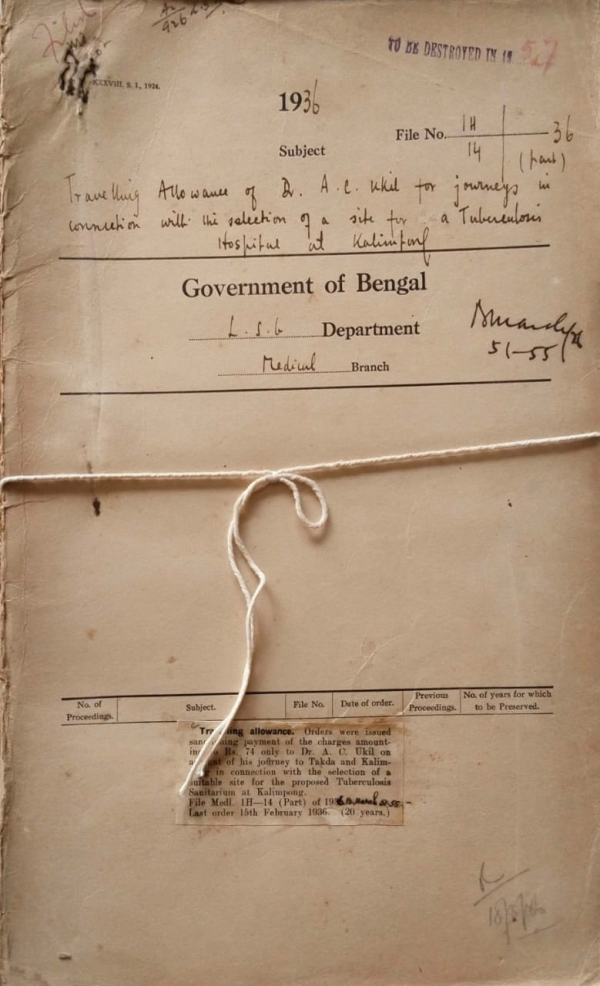 TO BE DESTROYED IN 19 57
XXXVIII. S. I., 1924.
1936
File No. 1H / 14 36
Subject (part)
Travelling Allowance of Dr. A. C. Ukil for journeys in
connection with the selection of a site for a Tuberculosis
Hospital at Kalimpong
Government of Bengal
L. S. G Department
51-55
Medical Branch
No. of Proceedings. Subject. File No. Date of order. Previous Proceedings. No. of years for which to be Preserved.
Travelling allowance. Orders were issued
sanctioning payment of the charges amount-
ing to Rs. 74 only to Dr. A. C. Ukil on
account of his journey to Takda and Kalim-
pong in connection with the selection of a
suitable site for the proposed Tuberculosis
Sanitarium at Kalimpong.
File Medl. 1H—14 (Part) of 193
Last order 15th February 1936. (20 years.)